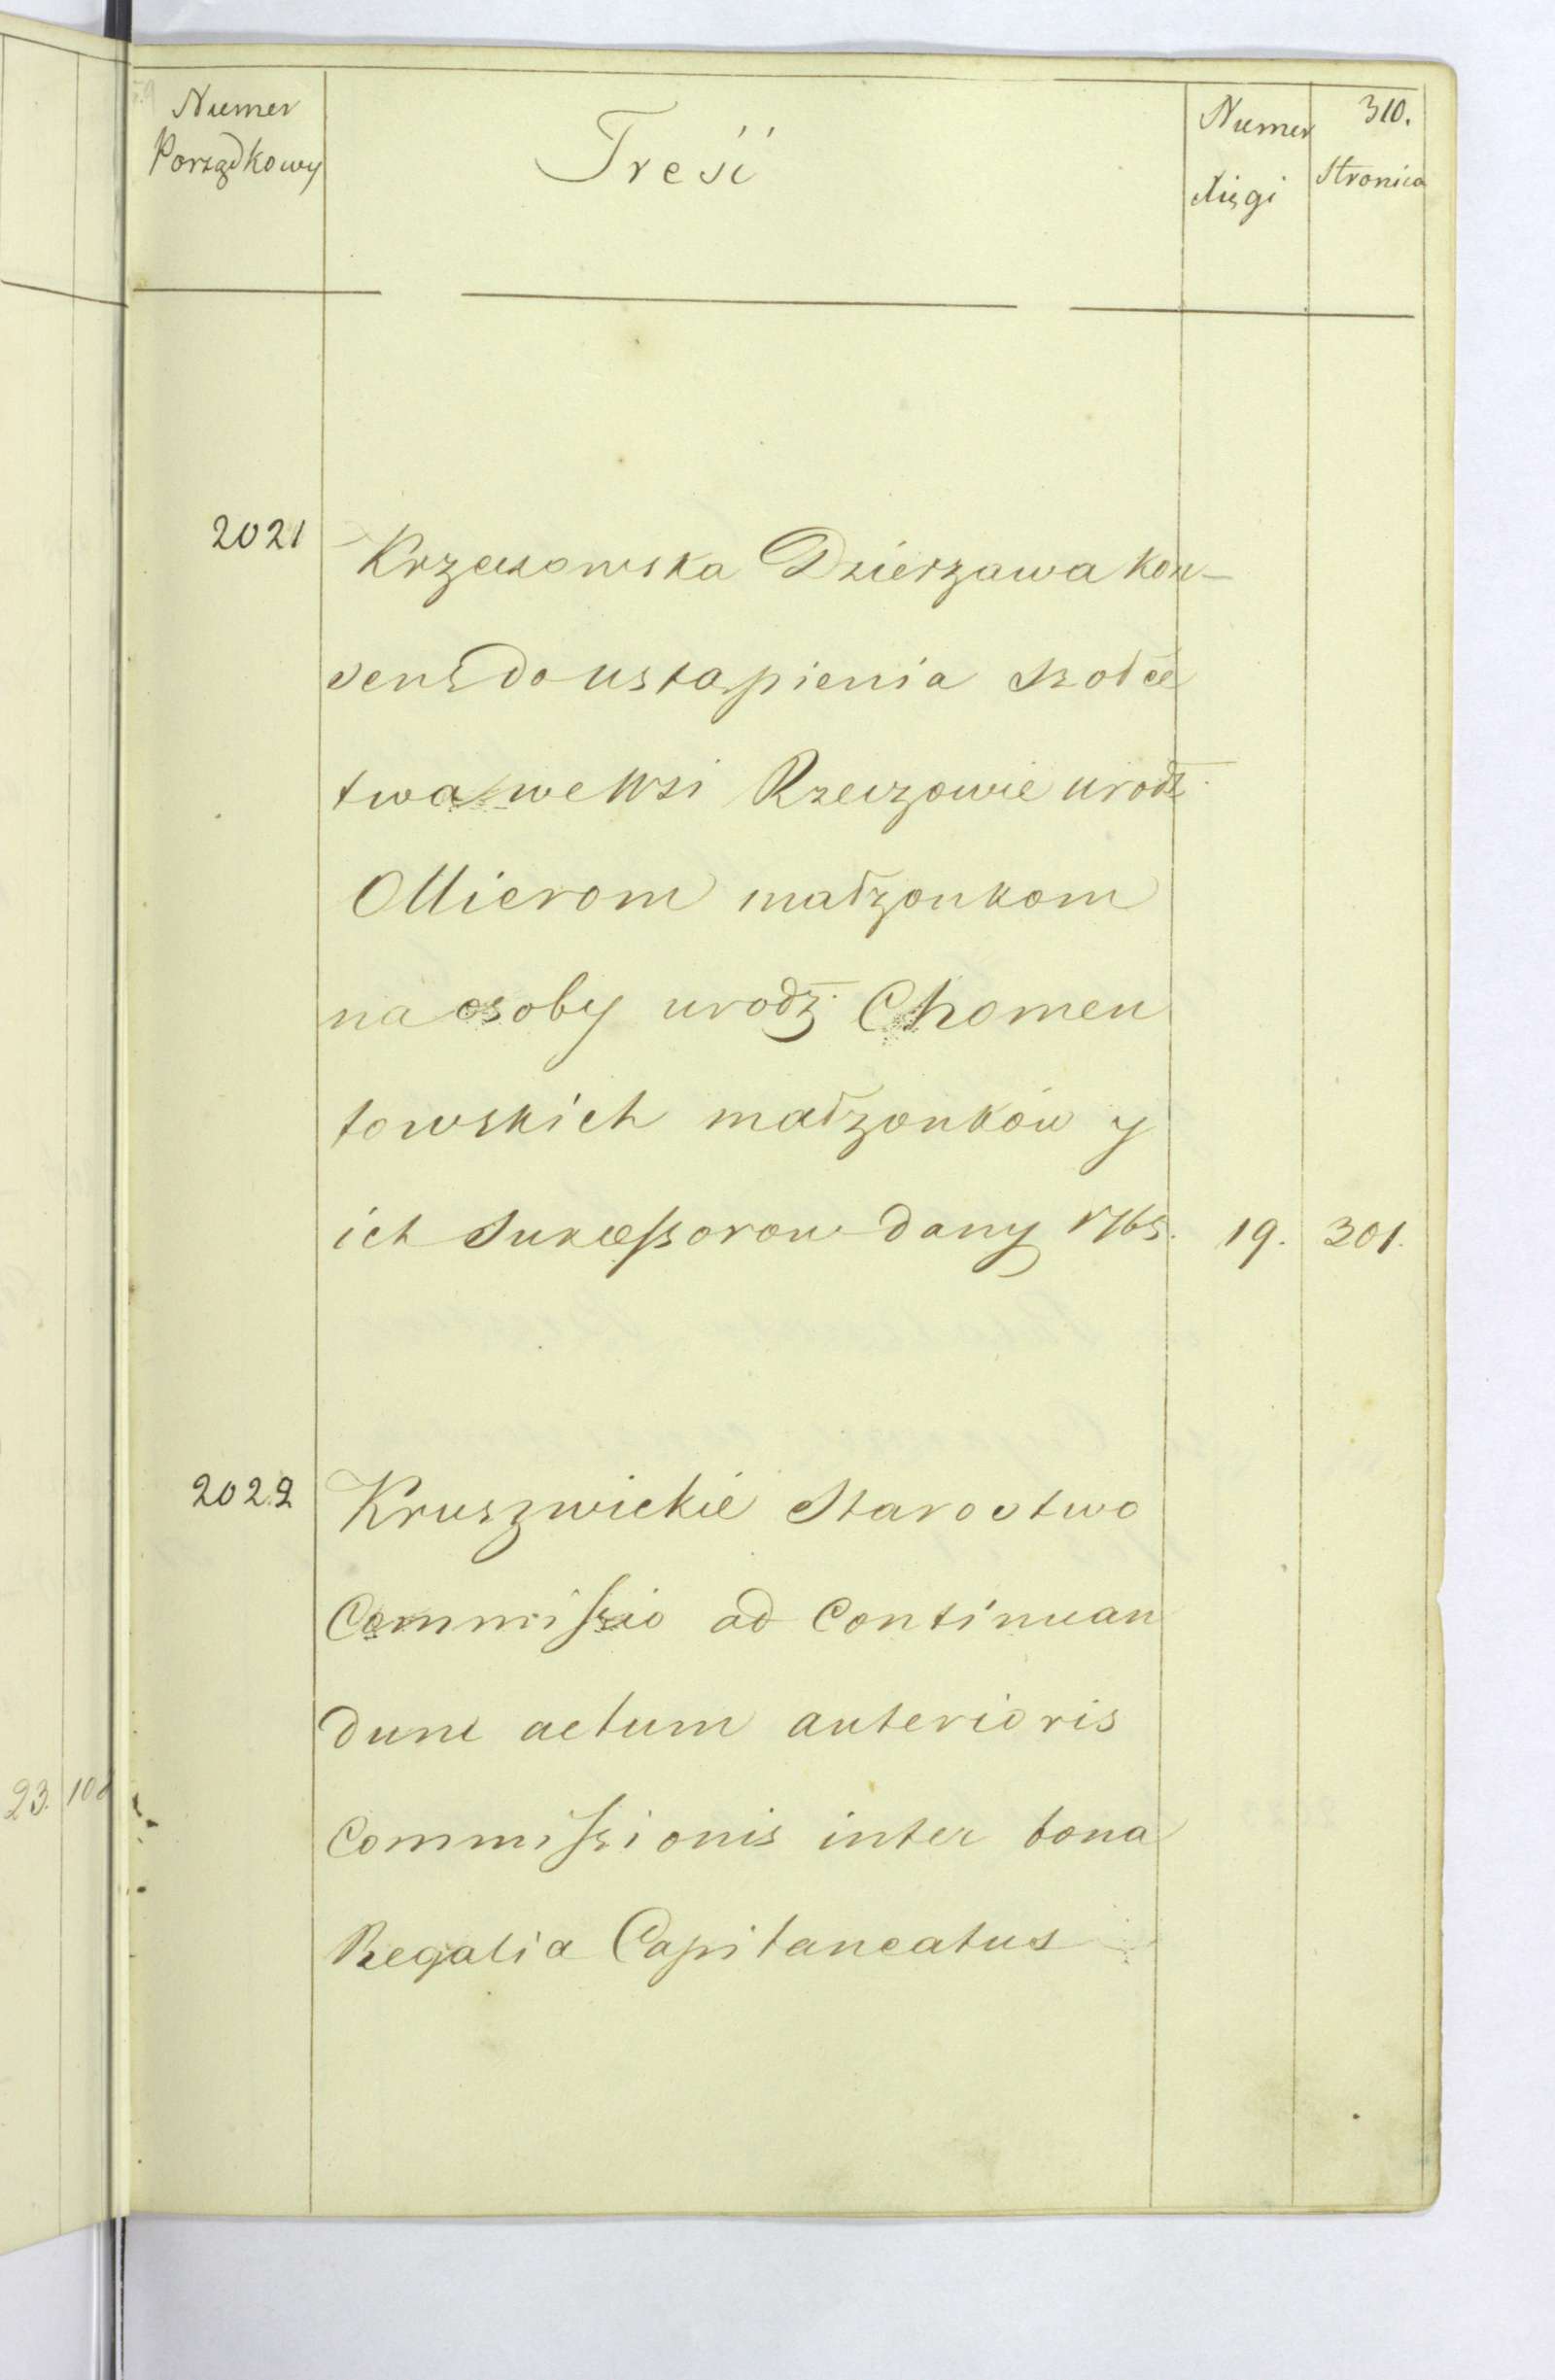 310.
Numer Porządkowy
Treść
Numer Xięgi
Stronica
2021
Krzeczowska Dzierzawa kon-
sens do ustąpienia Szołec
twa we Wsi Rzeczowie urodz.
Ollierom małzonkom
na osoby urodz. Chomen
towskich małzonków y
ich Sukcessorow dany 1765. 19. 301.
2022
Kruszwickie Starostwo
Commissio ad Continuan
dum actum anterioris
Commissionis inter bona
Regalia Capitaneatus
23.